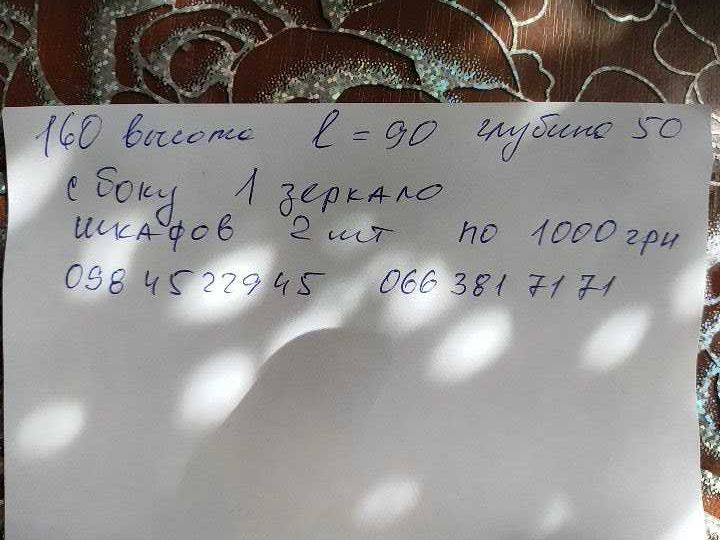 160 высота l = 90 глубина 50
с боку 1 зеркало
шкафов 2 шт по 1000 грн
098 45 229 45 066 381 71 71